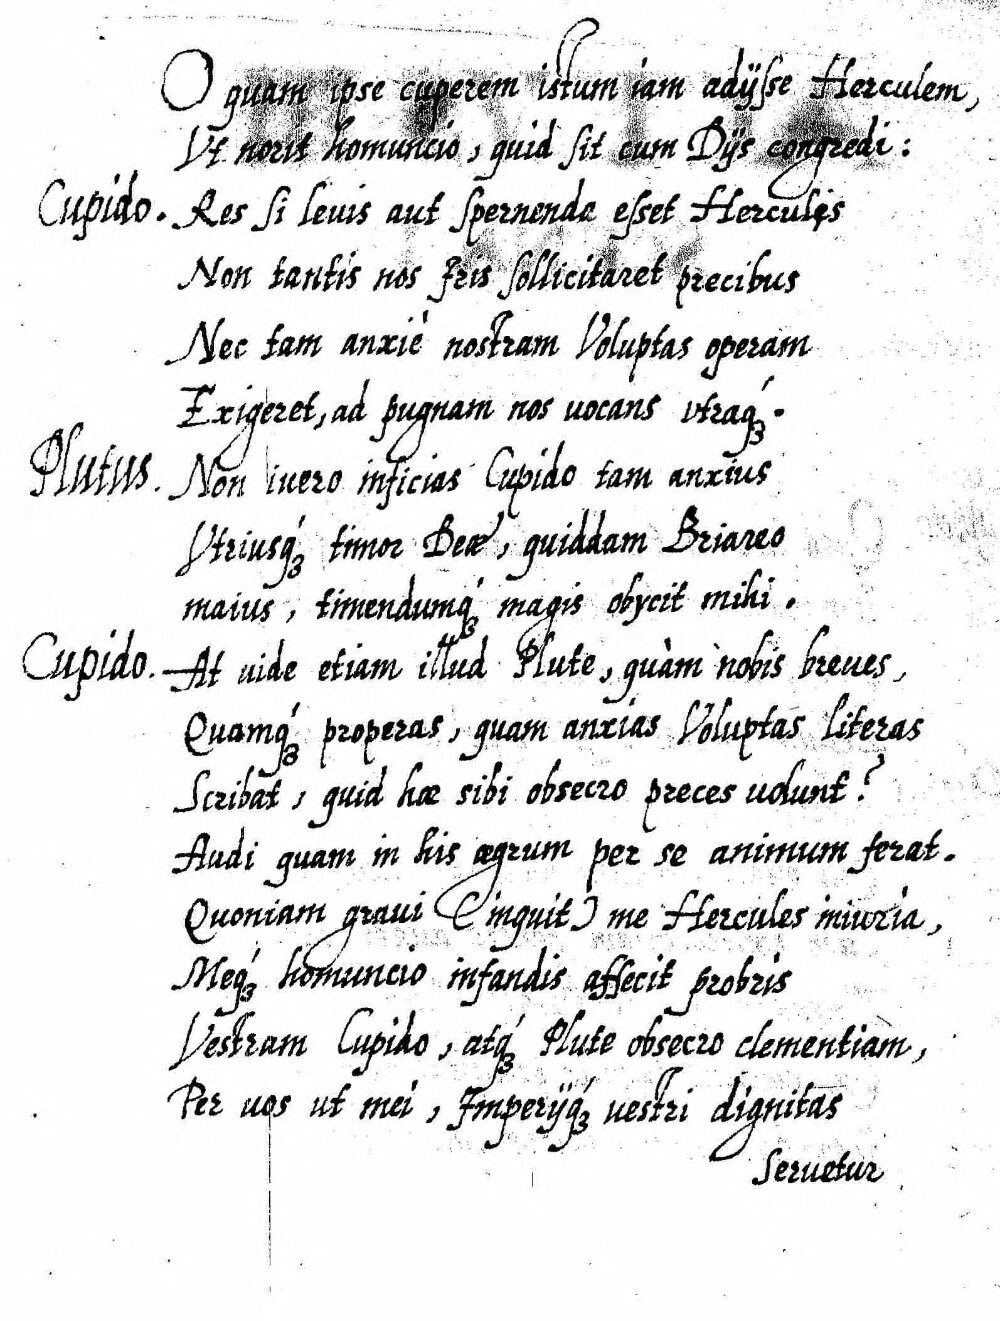 O quam ipse cuperem istum iam adijsse Herculem,
Vt norit homuncio, quid sit cum Dijs congredi:
Cupido. Res si leuis aut spernenda esset Herculis
Non tantis nos Iris sollicitaret precibus
Nec tam anxiè nostram Voluptas operam
Exigeret, ad pugnam nos uocans vtraq́ꝫ.
Plutus. Non iuero inficias Cupido tam anxius
Vtriusq́ꝫ timor Deæ, quiddam Briareo
maius, timendumq́ꝫ magis obijcit mihi.
Cupido. At uide etiam illud Plute, quàm nobis breues,
Quamq́ꝫ properas, quam anxias Voluptas literas
Scribat, quid hæ sibi obsecro preces uolunt?
Audi quam in his ægrum per se animum ferat.
Quoniam graui (inquit) me Hercules iniuria,
Meq́ꝫ homuncio infandis affecit probris
Vestram Cupido, atq́ꝫ Plute obsecro clementiam,
Per uos ut mei, Imperijq́ꝫ uestri dignitas
seruetur